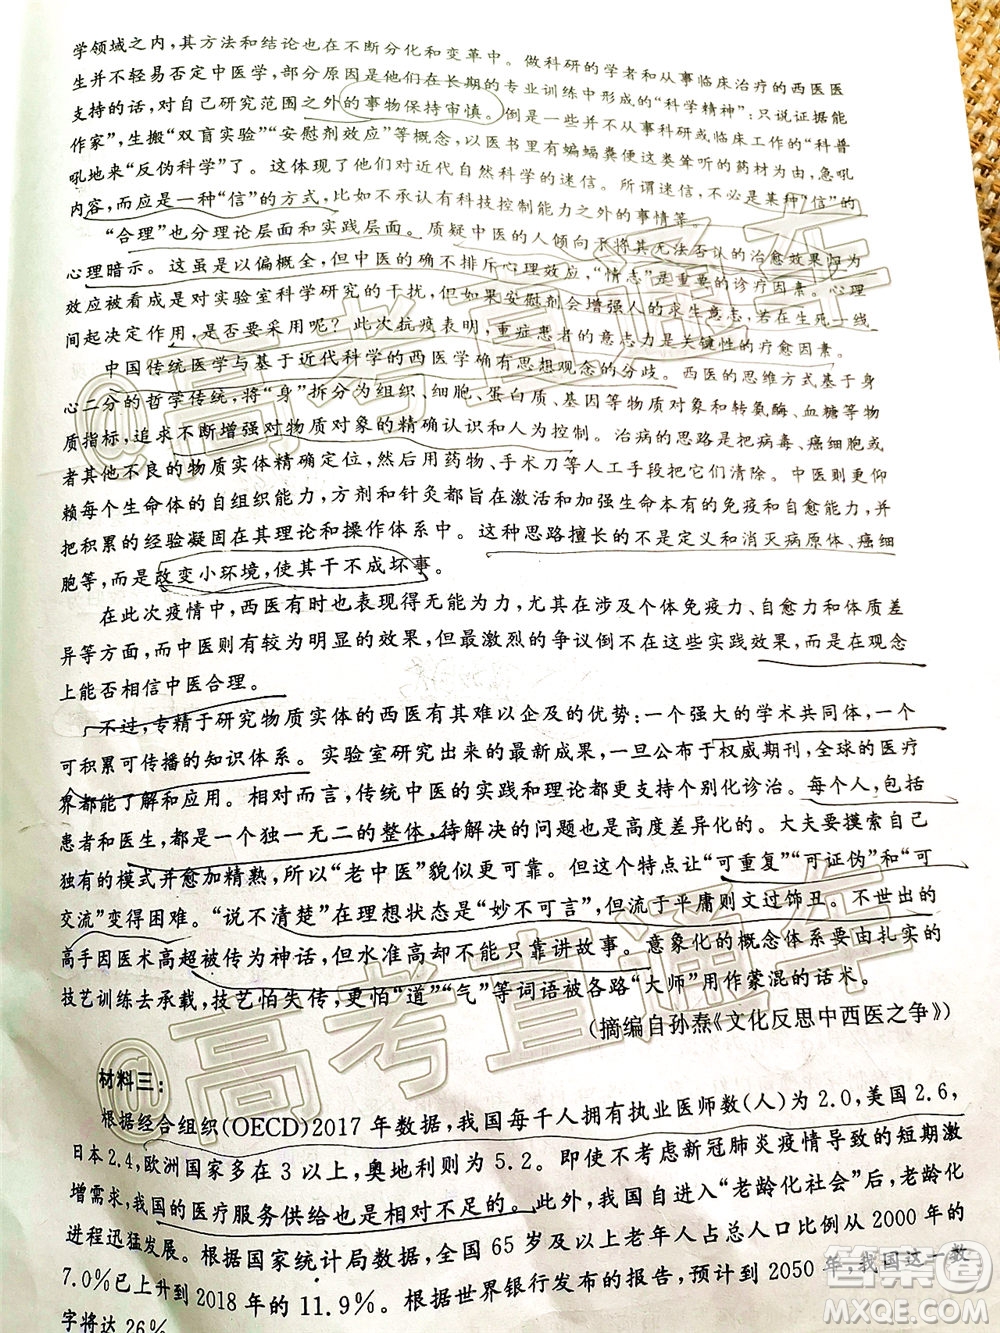 学领域之内,其方法和结论也在不断分化和变革中。做科研的学者和从事临床治疗的西医医
生并不轻易否定中医学,部分原因是他们在长期的专业训练中形成的“科学精神”:只说证据能
支持的话,对自己研究范围之外的事物保持审慎。倒是一些并不从事科研或临床工作的“科普
作家”,生搬“双盲实验”“安慰剂效应”等概念,以医书里有蝙蝠粪便这类耸听的药材为由,高吼
吼地来“反伪科学”了。这体现了他们对近代自然科学的迷信。所谓迷信,不必是某种“信”的
内容,而应是一种“信”的方式,比如不承认有科技控制能力之外的事情等。
“合理”也分理论层面和实践层面。质疑中医的人倾向于将其无法否认的治愈效果归为
心理暗示。这虽是以偏概全,但中医的确不排斥心理效应,“情志”是重要的诊疗因素。心理
效应被看成是对实验室科学研究的干扰,但如果安慰剂会增强人的求生意志,若在生死一线
间起决定作用,是否要采用呢?此次抗疫表明,重症患者的意志力是关键性的疗愈因素。
中国传统医学与基于近代科学的西医学确有思想观念的分歧。西医的思维方式基于身
心二分的哲学传统,将“身”拆分为组织、细胞、蛋白质、基因等物质对象和转氨酶、血糖等物
质指标,追求不断增强对物质对象的精确认识和人为控制。治病的思路是把病毒、癌细胞或
者其他不良的物质实体精确定位,然后用药物、手术刀等人工手段把它们清除。中医则更仰
赖每个生命体的自组织能力,方剂和针灸都旨在激活和加强生命本有的免疫和自愈能力,并
把积累的经验凝固在其理论和操作体系中。这种思路擅长的不是定义和消灭病原体、癌细
胞等,而是改变小环境,使其干不成坏事。
在此次疫情中,西医有时也表现得无能为力,尤其在涉及个体免疫力、自愈力和体质差
异等方面,而中医则有较为明显的效果,但最激烈的争议倒不在这些实践效果,而是在观念
上能否相信中医合理。
不过,专精于研究物质实体的西医有其难以企及的优势:一个强大的学术共同体,一个
可积累可传播的知识体系。实验室研究出来的最新成果,一旦公布于权威期刊,全球的医疗
界都能了解和应用。相对而言,传统中医的实践和理论都更支持个别化诊治。每个人,包括
患者和医生,都是一个独一无二的整体,待解决的问题也是高度差异化的。大夫要摸索自己
独有的模式并愈加精熟,所以“老中医”貌似更可靠。但这个特点让“可重复”“可证伪”和“可
交流”变得困难。“说不清楚”在理想状态是“妙不可言”,但流于平庸则文过饰丑。不世出的
高手因医术高超被传为神话,但水准高却不能只靠讲故事。意象化的概念体系要由扎实的
技艺训练去承载,技艺怕失传,更怕“道”“气”等词语被各路“大师”用作蒙混的话术。
(摘编自孙焘《文化反思中西医之争》)
材料三:
根据经合组织(OECD)2017年数据,我国每千人拥有执业医师数(人)为2.0,美国2.6,
日本2.4,欧洲国家多在3以上,奥地利则为5.2。即使不考虑新冠肺炎疫情导致的短期激
增需求,我国的医疗服务供给也是相对不足的。此外,我国自进入“老龄化社会”后,老龄化
进程迅猛发展。根据国家统计局数据,全国65岁及以上老年人占总人口比例从2000年的
7.0%已上升到2018年的11.9%。根据世界银行发布的报告,预计到2050年,我国这一数
字将达26%
@高考直通车
@高考直通车
答案圈
MXQE.COM